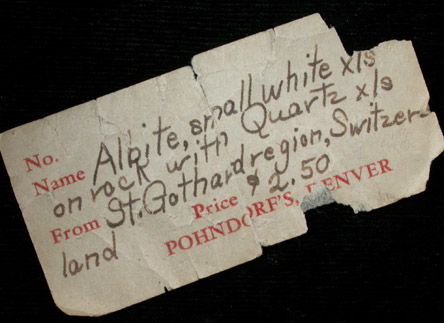 No.
Name Albite, small white xls
on rock with Quartz xls
From St. Gothard region, Switzer-
land Price $2.50
POHNDORF'S, DENVER